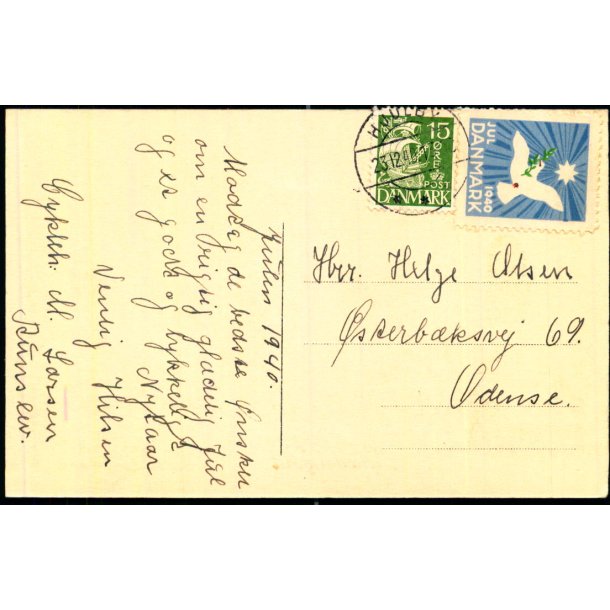 Julen 1940.
Modtag de bedste Ønsker
om en rigtig glædelig Jul
og et godt og lykkeligt
Nytaar
Venlig Hilsen
Cyklh. M. Larsen
15
ØRE
POST
DANMARK
23.12.40
JUL
DANMARK
1940
Hr. Helge Olsen
Østerbæksvej 69.
Odense.